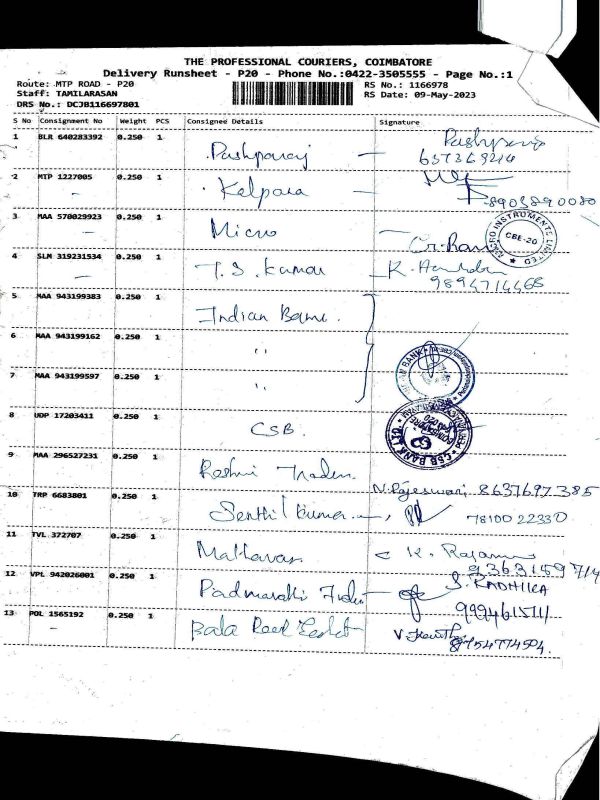 THE PROFESSIONAL COURIERS, COIMBATORE
Delivery Runsheet - P20 - Phone No.:0422-3505555 - Page No.:1
Route: MTP ROAD - P20 RS No.: 1166978
Staff: TAMILARASAN RS Date: 09-May-2023
DRS No.: DCJB116697801
S No Consignment No Weight PCS Consigned Details Signature
1 BLR 640283392 0.250 1 Pushpavaj
2 MTP 1227005 0.250 1 Kalpana 8903890080
3 MAA 570029923 0.250 1 Micro MICRO INSTRUMENTS LIMITED CBE-20
4 SLM 319231534 0.250 1 T.S. Kumar 9894714468
5 MAA 943199383 0.250 1 Indian Bank.
6 MAA 943199162 0.250 1 "
7 MAA 943199597 0.250 1 "
8 UDP 17203411 0.250 1 CSB. CSB BANK
9 MAA 296527231 0.250 1 Reshmi Traders N. Rajeswari 8637697385
10 TRP 6683801 0.250 1 Senthil Kumar 78100 22330
11 TVL 372707 0.250 1 K. Rajamm 9363159714
12 VPL 942026001 0.250 1 S. RADHIKA 9994615711
13 POL 1565192 0.250 1 Bala Real Estate 8754774504.